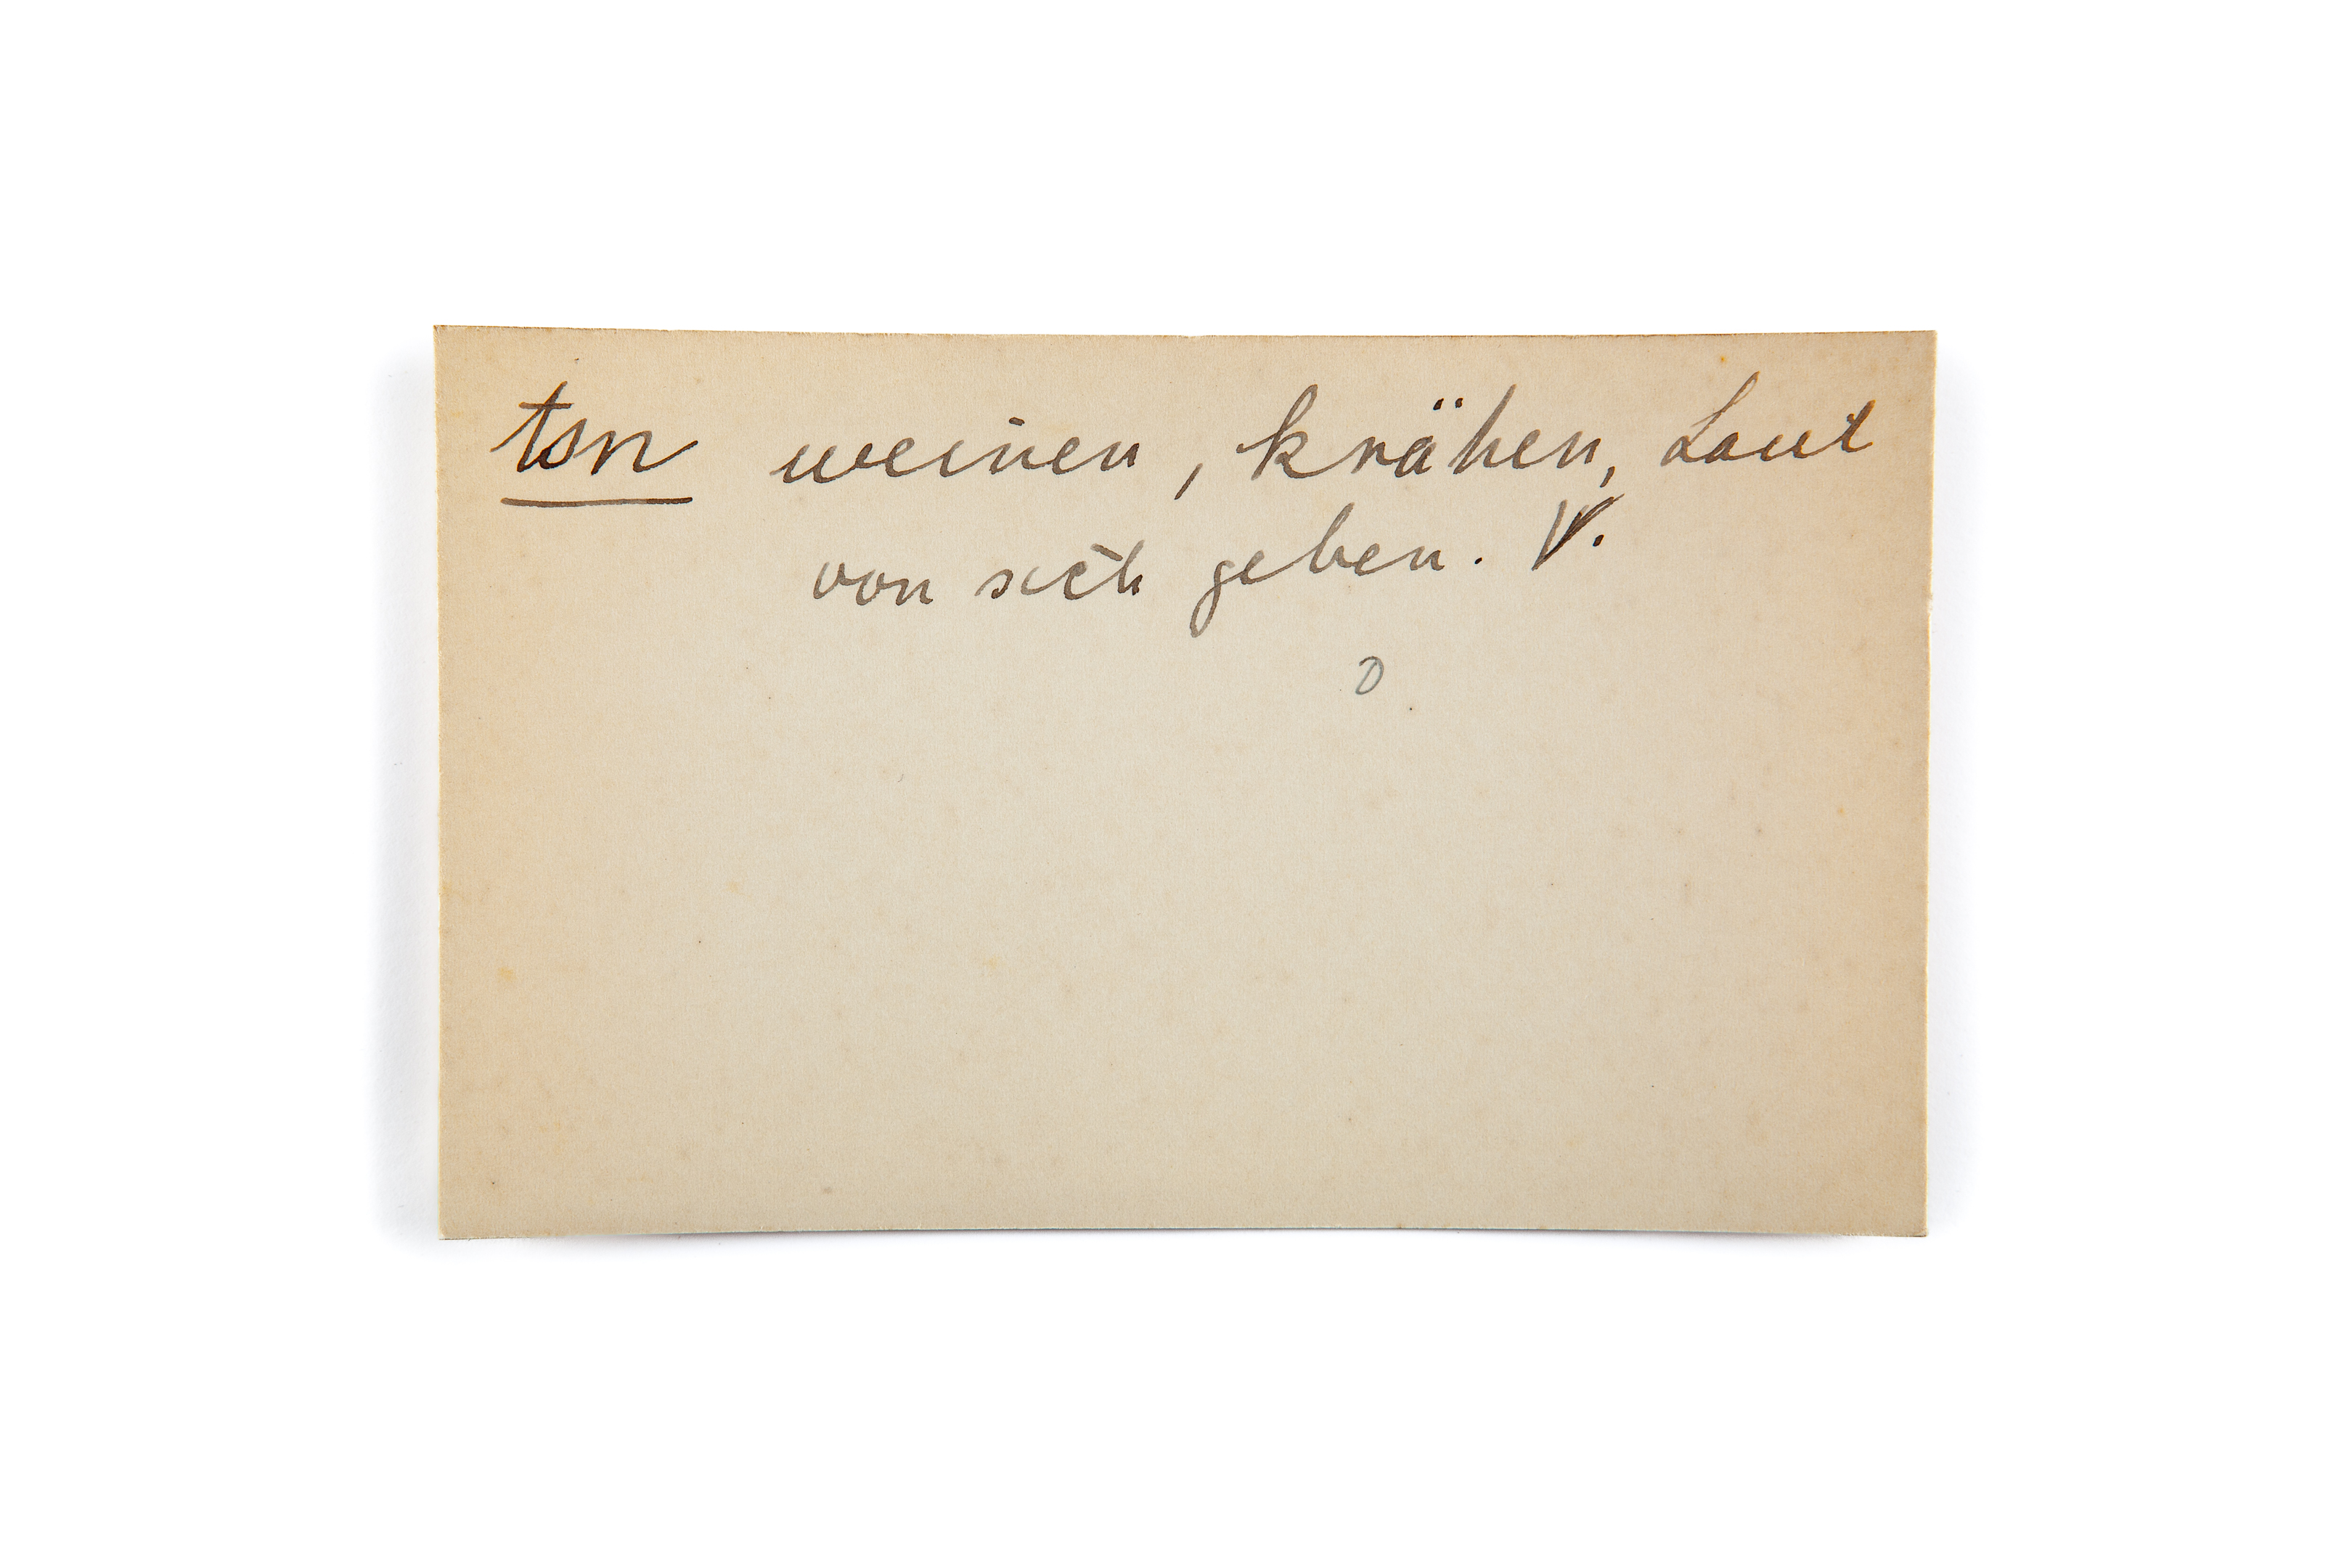 tsn weinen, krähen, Laut
von sich geben. V.
D